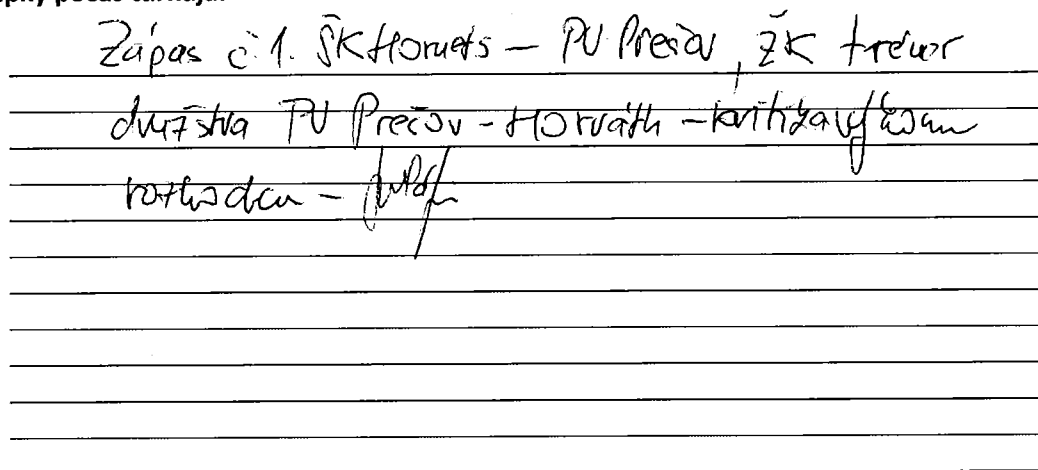 počas turnaja:
Zápas č. 1. ŠK Hornets – PU Prešov, ŽK tréner
družstva PU Prešov – Horváth – kritizoval
rozhodcu –